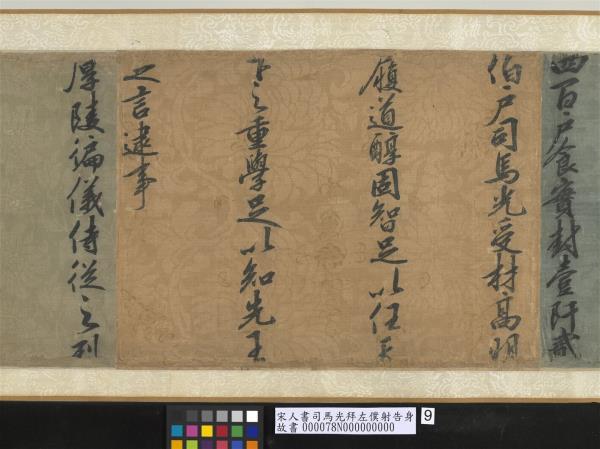 四百戶食實封壹阡貳
伯戶司馬光受材高明
履道醇固智足以任天
下之重學足以知先王
之言逮事
厚陵徧儀侍從之列
宋人書司馬光拜左僕射告身
故書 000078N000000000
9